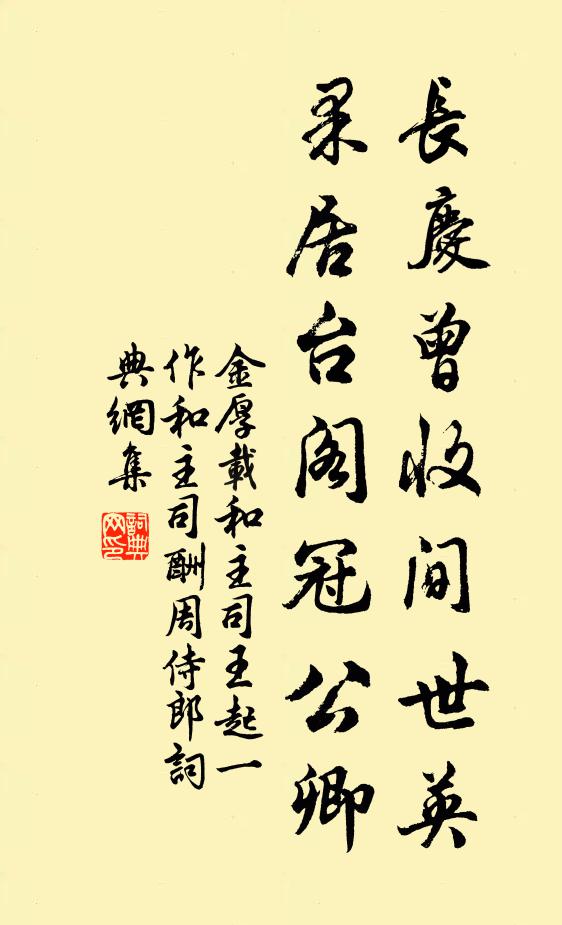 長慶曾收間世英
果居台閣冠公卿
金厚載和主司王起一
作和主司酬周侍郎詞
典網集
詞典網印